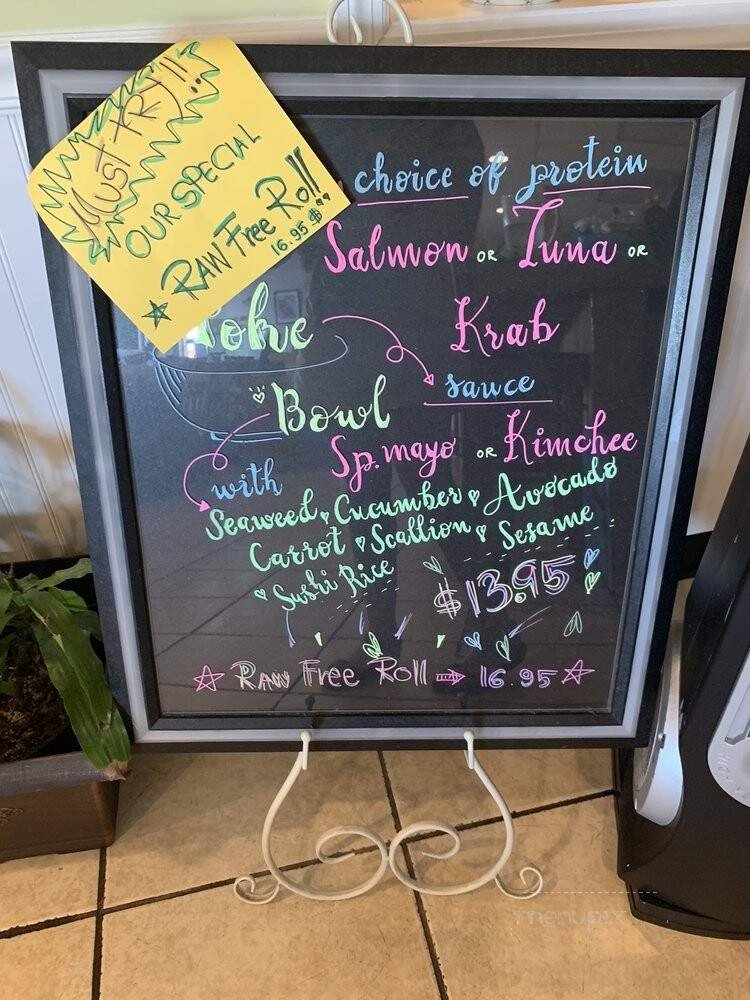 MUST TRY!!
OUR SPECIAL
RAW Free Roll!
16.95 $
choice of protein
Salmon OR Tuna OR
Krab
Poke
Bowl
sauce
Sp. mayo OR Kimchee
with
Seaweed Cucumber Avocado
Carrot Scallion Sesame
Sushi Rice
$13.95
RAW Free Roll 16.95
menupix